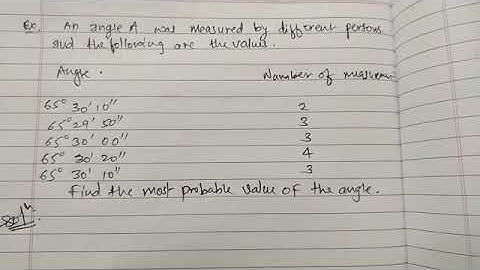 Ex. An angle A was measured by different persons
and the following are the values.
Angle. Number of measurem
65° 30' 10" 2
65° 29' 50" 3
65° 30' 00" 3
65° 30' 20" 4
65° 30' 10" 3
find the most probable value of the angle.
Solⁿ.